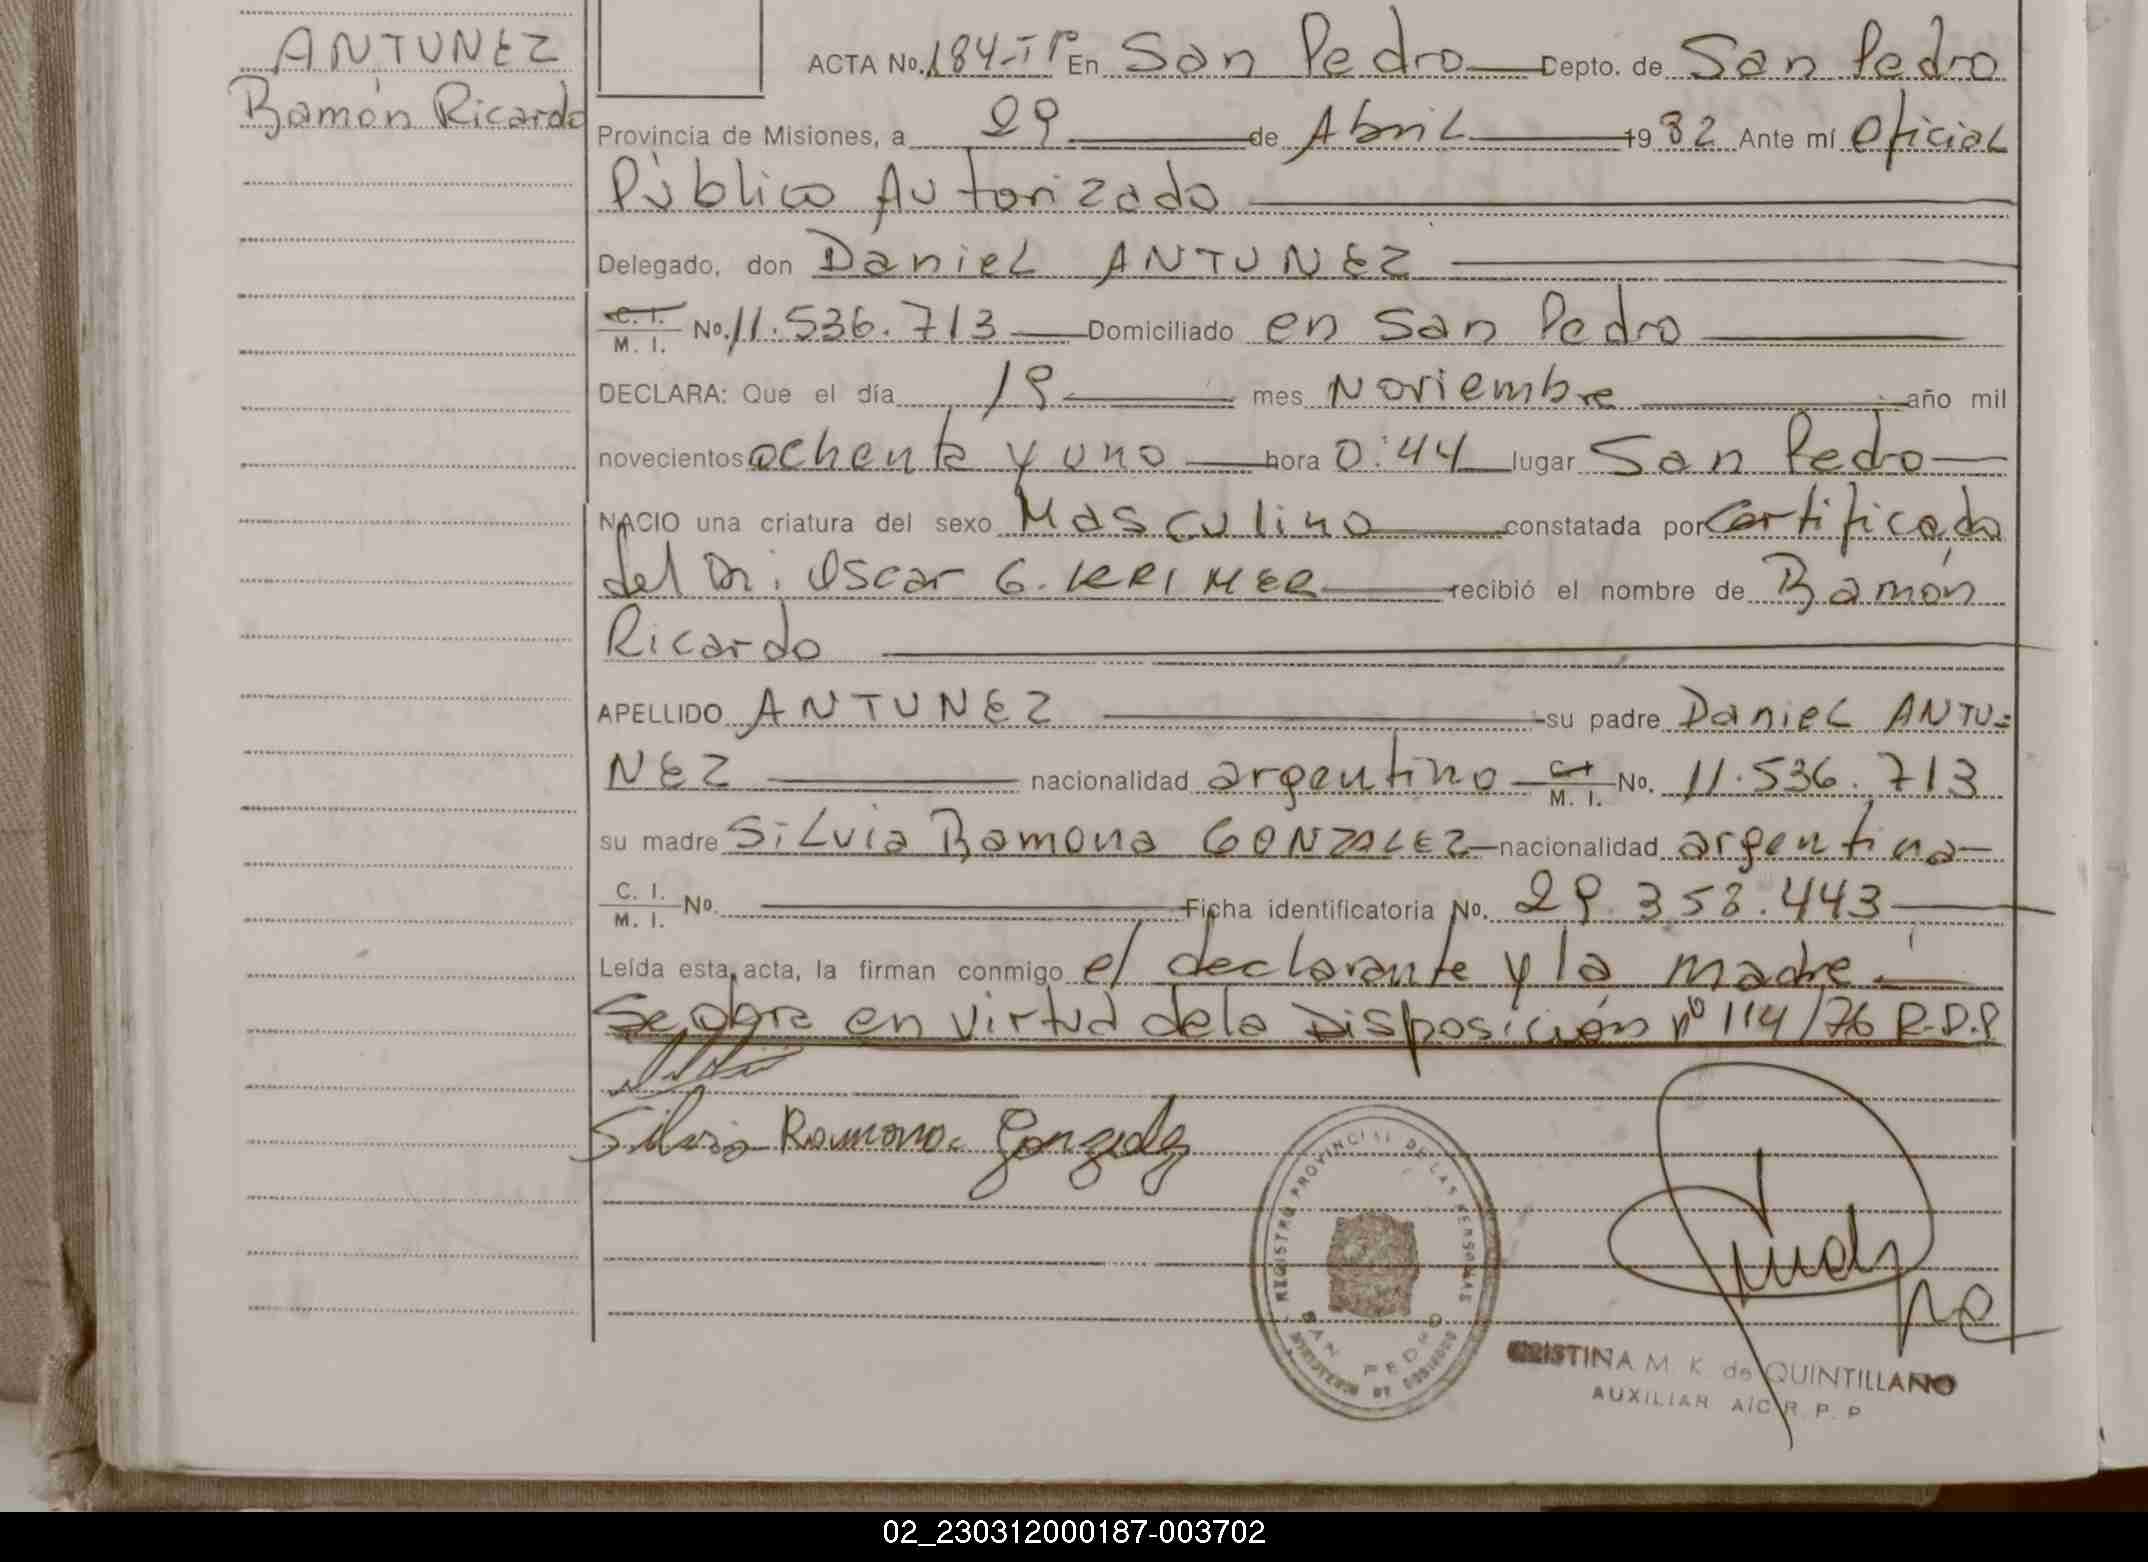 ANTUNEZ
Ramón Ricardo
ACTA No. 184-Tº En San Pedro Depto. de San Pedro
Provincia de Misiones, a 29 de Abril 1982 Ante mí Oficial
Público Autorizado
Delegado, don Daniel ANTUNEZ
C. I. / M. I. No. 11.536.713 Domiciliado en San Pedro
DECLARA: Que el día 19 mes Noviembre año mil
novecientos ochenta y uno hora 0:44 lugar San Pedro
NACIO una criatura del sexo Masculino constatada por Certificado
del Dr. Oscar G. KRIMER recibió el nombre de Ramón
Ricardo
APELLIDO ANTUNEZ su padre Daniel ANTU=
NEZ nacionalidad argentino C.I. / M. I. No. 11.536.713
su madre Silvia Ramona GONZALEZ nacionalidad argentina
C. I. / M. I. No. Ficha identificatoria No. 29.358.443
Leída esta acta, la firman conmigo el declarante y la madre.
Se obra en virtud de la Disposición nº 114/76 R.D.P
Silvia Ramona Gonzalez
REGISTRO PROVINCIAL DE LAS PERSONAS
SAN PEDRO
CRISTINA M. K. de QUINTILLANO
AUXILIAR A/C R. P. P
02_230312000187-003702